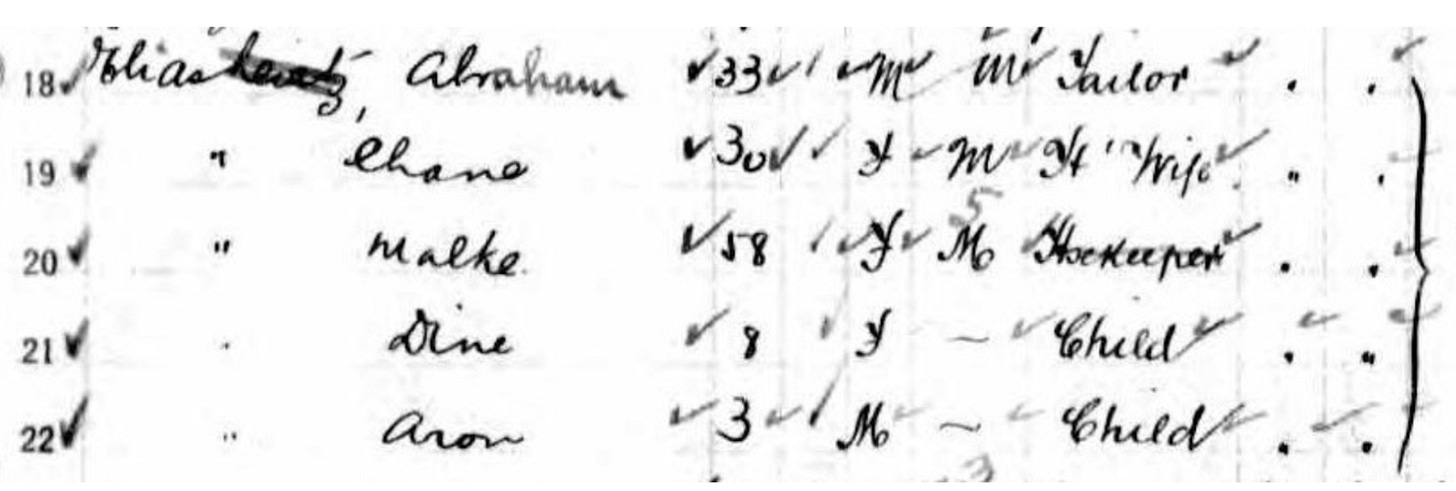 18 Eliaskewtz, Abraham 33 M M Tailor . .
19 " Chane 30 F M Ht "Wife . " .
20 " Malke. 58 F M Hsekeeper . .
21 . Dine 8 F - Child . "
22 " Aron 3 M ~ Child . .